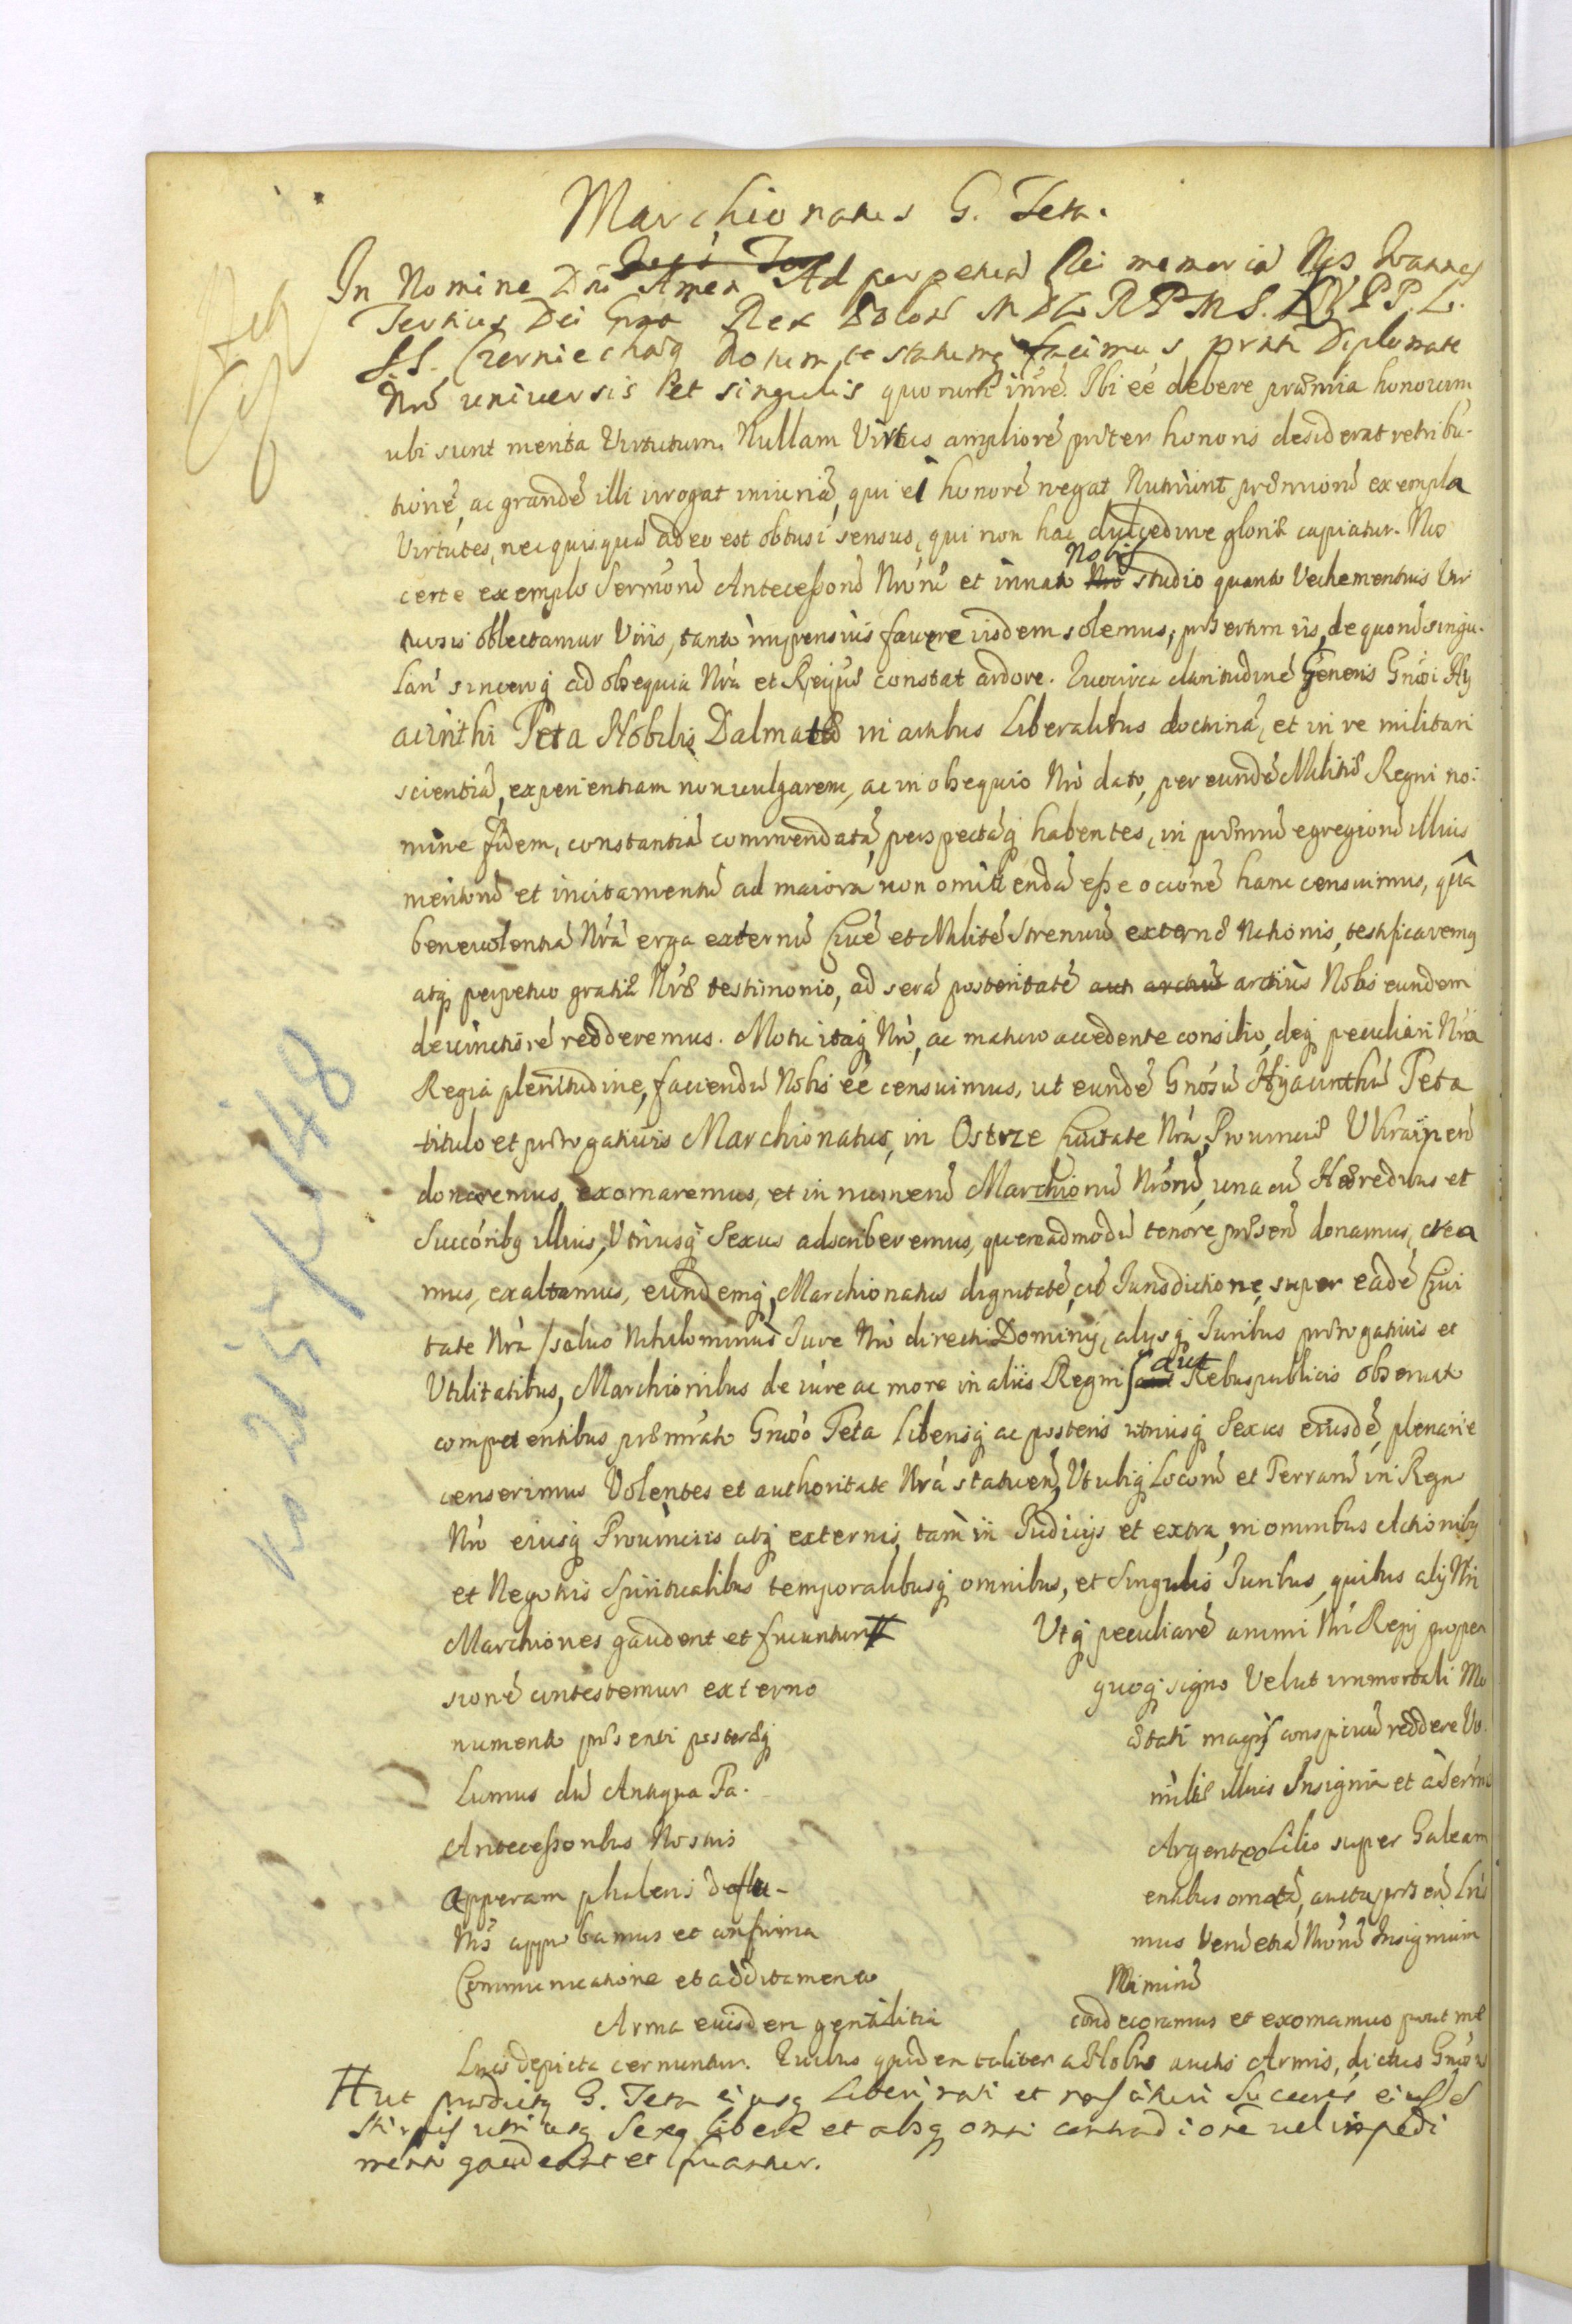 Marchionatus G. Teta.
In Nomine Dni Amen Ad perpetuã Rei memoriã Nos Ioannes
Tertius Dei Gra Rex Polon M D L R P M S. K P P. L.
SS. Czerniechoq Notum testatumq facimus pnti Diplomate
Nrõ universis et singulis quorum inrẽ. Ibi eẽ debere præmia honorum
ubi sunt merita Virtutum. Nullam Virtus ampliorẽ præter honoris desiderat retribu-
tionẽ, ac grandẽ illi irrogat iniuriã, qui ei honorẽ negat. Nutriunt præmiorũ exempla
Virtutes, nec quisquã adeo est obtusi sensus, qui non hac dulcedine gloriæ capiatur. Nos
certe exemplo Sermorũ Antecessorũ Nrorũ et innato Nobis studio quanto Vechementius Vir
tuosis oblectamur Viris, tanto impensius favere iisdem solemus, præsertim iis, de quorũ singu-
lari sinceroq ad obsequia Nrà et Reipub constat ardore. Quocirca claritudinẽ Generis Gnrosi Hy
acinthi Teta Nobilis Dalmatæ in artibus Liberalibus doctrinã, et in re militari
scientiã, experientiam non vulgarem, ac in obsequio Nrò dato, per eundẽ Militiæ Regni no-
mine fidem, constantiã commendatã, perspectãq habentes, in præmiũ egregiorũ illius
meritorũ et incitamentũ ad maiora non omittendã esse occonẽ hanc censuimus, quâ
benevolentiã Nrã erga externũ Civẽ et Militẽ Strenuũ externæ Nationis, testificaremq
atq perpetuo gratiæ Nræ testimonio, ad serã posteritatẽ arctius Nobis eundem
devinctiorẽ redderemus. Motu itaq Nrò, ac maturo accedente consilio, deq peculiari Nrã
Regia plenitudine, faciendũ Nobis eẽ censuimus, ut eundẽ Gnrosũ Hyacinthũ Teta
titulo et prærogativis Marchionatus, in Ostrze Civitate Nrã, Provinciæ Ukrainen
donaremus, exornaremus, et in numerũ Marchionũ Nrorũ, una cũ Hæredibus et
Succoribq illius, Utriusq Sexus adscriberemus, quemadmodũ tenore præsen donamus, crea
mus, exaltamus, eundemq, Marchionatus dignitatẽ, cũ Iurisdictione, super eadẽ Civi
tate Nrà / salvo Nihilominus Iure Nrò directi Dominij, alysq Iuribus prærogativis et
Utilitatibus, Marchionibus de iure ac more in aliis Regnis aut Rebuspublicis observato
competentibus præmrato Gnroso Teta Liberisq ac posteris utriusq Sexus eiusdẽ, plenarie
censerimus Volentes et authoritate Nrã statuen, Ut ubiq Locorũ et Terrarũ in Regno
Nrò eiusq Provinciis atq externis, tam in Iudicijs et extra, in omnibus Actionibq
et Negotiis Spiritualibus temporalibusq omnibus, et Singulis Iuribus, quibus alij Nri
Marchiones gaudent et fruuntur # Utq peculiarẽ animi Nri Regij propen
sionẽ contestemur externo quoq signo Velut immortali Mo
numento præsenti posteræq ætati magis conspicuũ reddere Vo.
Lumus dũ Antiqua Fa. miliæ illius Insignia et à Serm
Antecessoribus Nostris Argenteo Lilio super Galeam
apperam phaleris deflu- entibus ornatã, aucta præsen Lris
Nris approbamus et confirma mus Verũ etiã Nrorũ Insignium
Communicatione et additamento
Arma eiusdem gentilitia condecoramus et exornamus prout me
Lius depicta cernuntur. Quibus quidem taliter a Nobis auctis Armis, dictus Gnros
# ut prædictq G. Teta eiusq Liberi nati et nascituri Succes eiusd
stirpis utriusq Sexq libere et absq omni contradione vel impedi
mento gaudeant et fruantur.
No 21 57 K/48